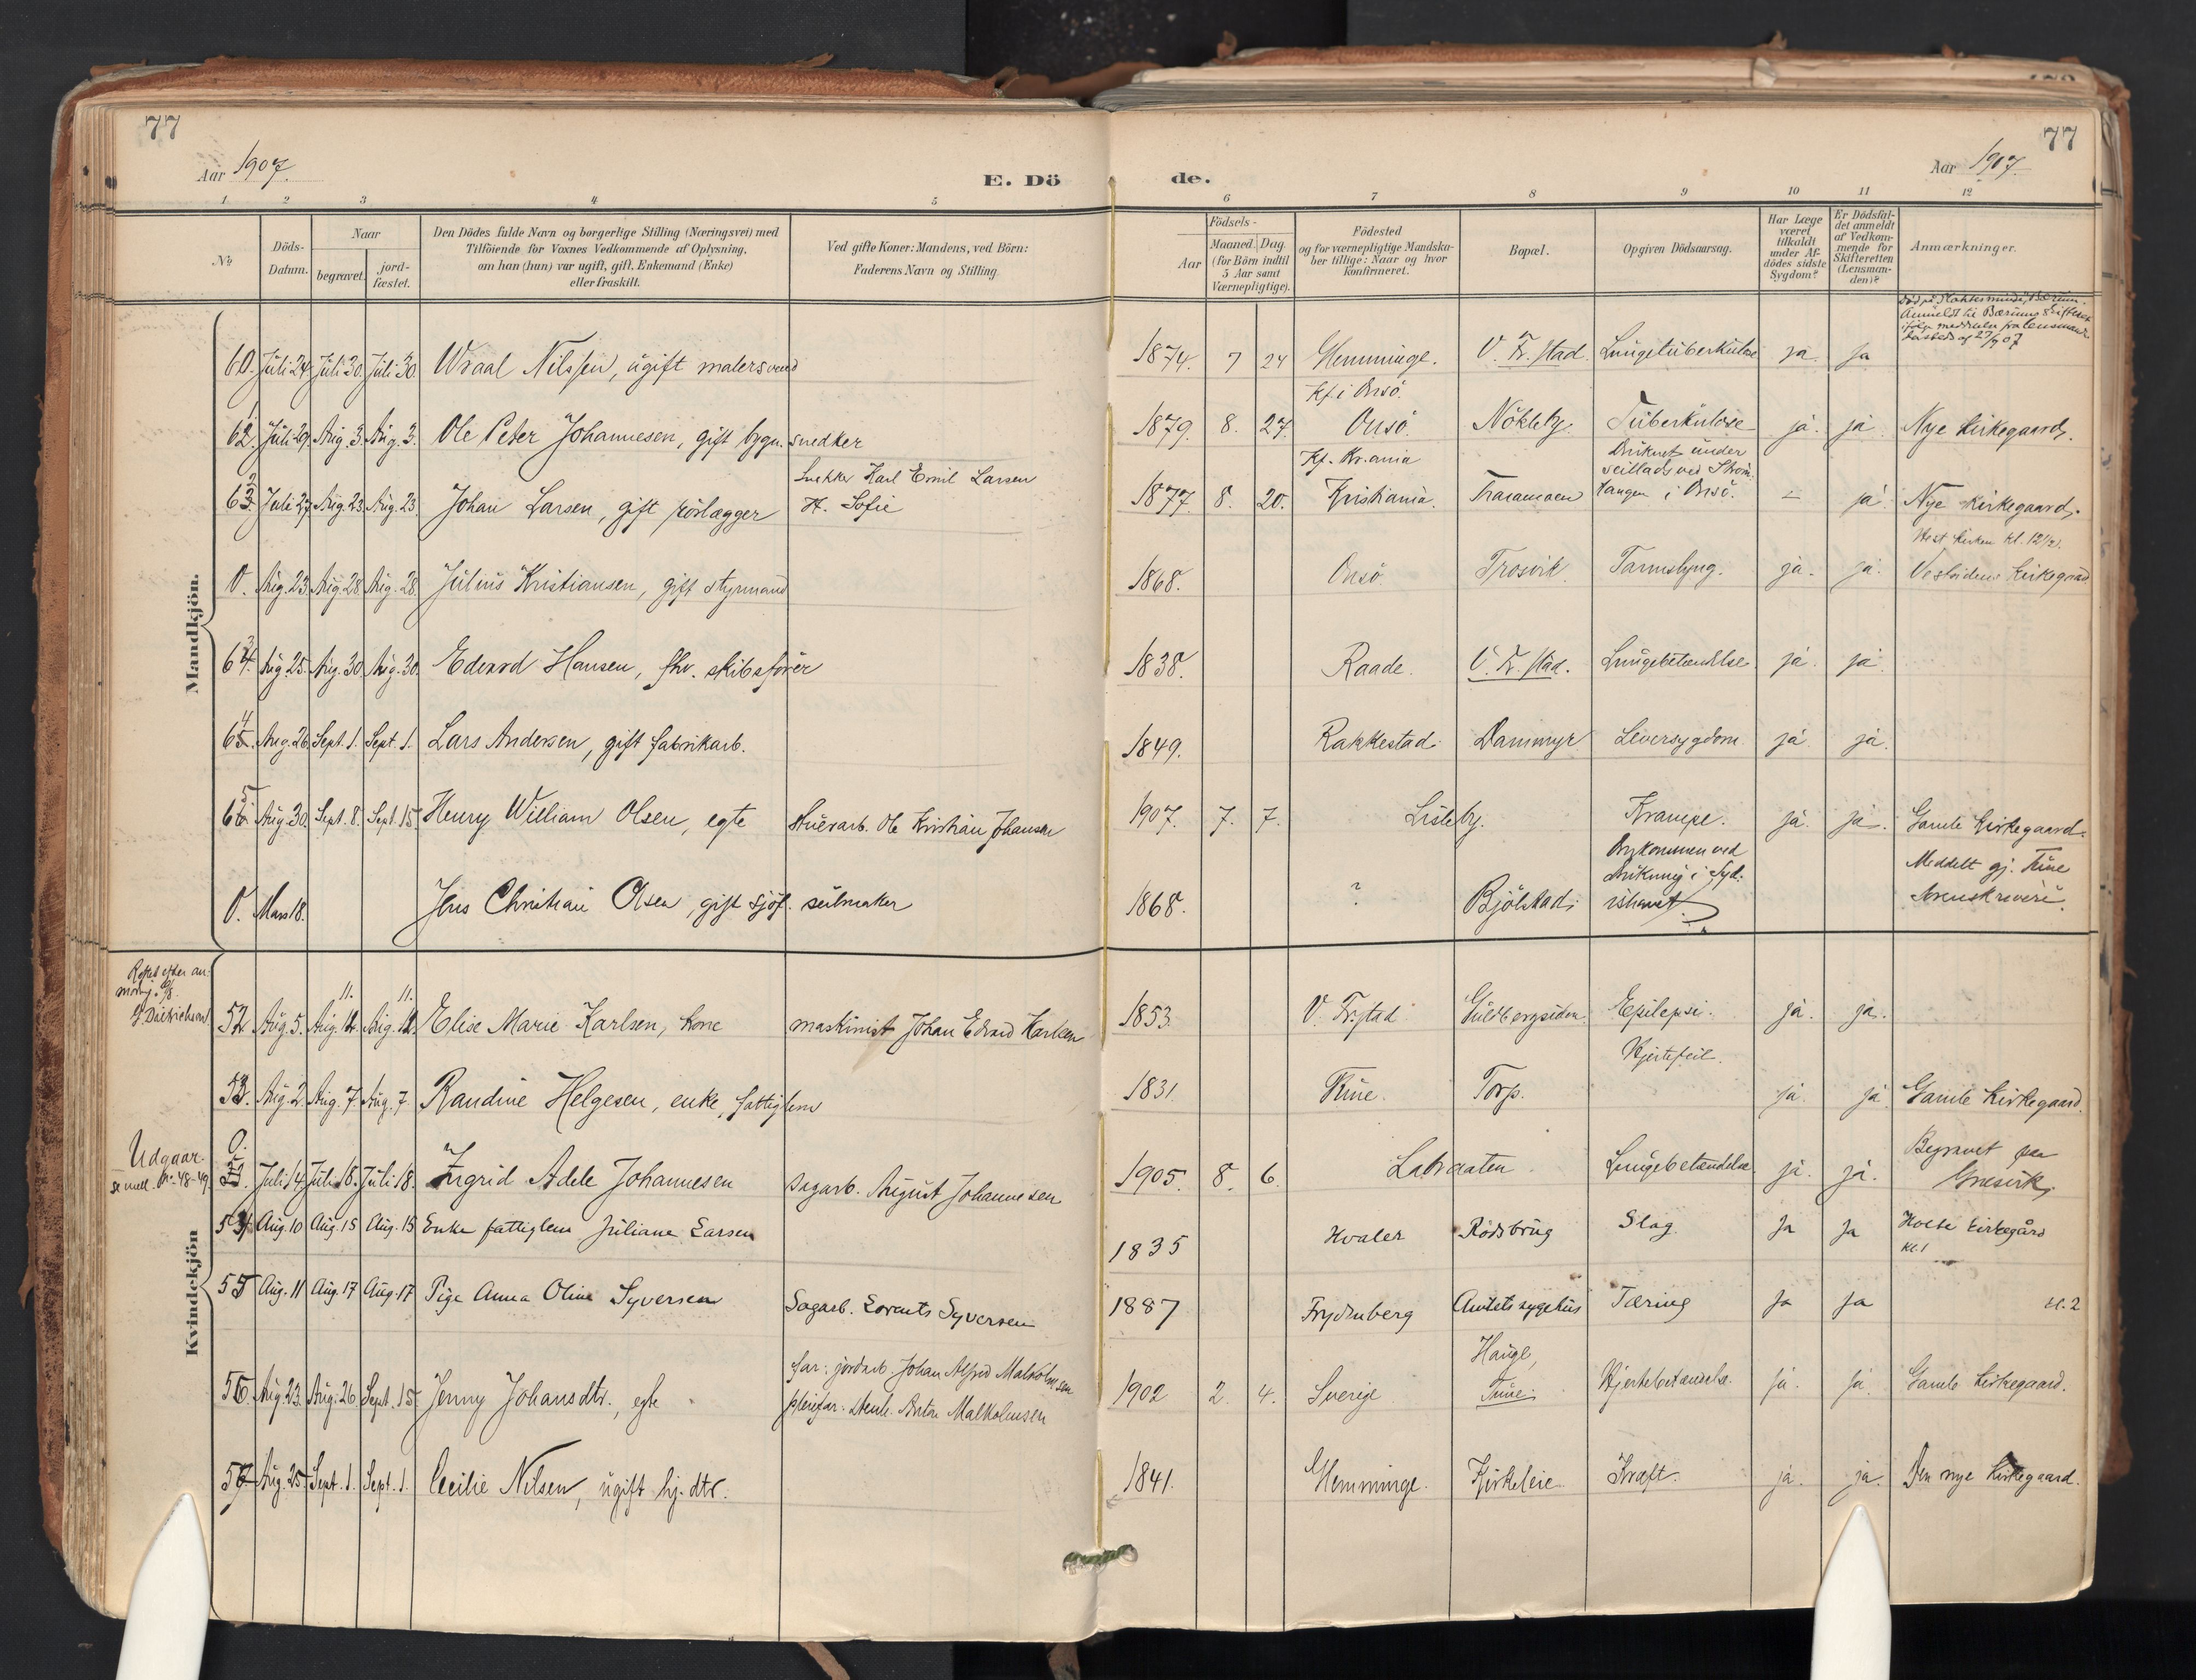 77
77
Aar 1907.
E. Dö
de.
Aar 1907.
1 2 3 4 5 6 7 8 9 10 11 12
No
Döds-Datum.
Naar
begravet.
jord-fæstet.
Den Dödes fulde Navn og borgerlige Stilling (Næringsvei) med
Tilföiende for Voxnes Vedkommende af Oplysning,
om han (hun) var ugift, gift, Enkemand (Enke)
eller fraskilt.
Ved gifte Koner: Mandens, ved Börn:
Faderens Navn og Stilling.
Födsels-
Aar
Maaned. Dag.
(for Börn indtil
5 Aar samt
Værnepligtige).
Födested
og for værnepligtige Mandsku-
ber tillige: Naar og hvor
konfirmeret.
Bopæl.
Opgiven Dödsaarsag.
Har Læge
været
tilkaldt
under Af-
dödes sidste
Sygdom?
Er Dödsfal-
det anmeldt
af Vedkom-
mende for
Skifteretten
(Lensman-
den)?
Anmærkninger.
Mandkjön.
Anmeldt til Bærums skifteret
27/7 07
60. Juli 24 Juli 30. Juli 30. Wraal Nilssen, ugift malersvend 1874. 7 24 Glemminge. V. Fr.stad Lungetuberkulose ja. ja
Kf. i Onsö.
62. 1 Juli 29. Aug. 3. Aug. 3. Ole Peter Johannesen, gift bygn. snedker 1879. 8. 27. Onsö. Nökleby Tuberkulose ja. ja. Nye kirkegaard.
Kf. Kr.ania
Druknet under
seillads ved Ström-
Snekker Karl Emil Larsen
63. 2 Juli 27. Aug. 23. Aug. 23. Johan Larsen, gift rörlægger H. Sofie 1877. 8. 20. Kristiania. Traramoen tangen i Onsö. – ja. Nye kirkegaard.
Vest kirken kl. 12 1/2.
0. Aug. 23. Aug. 28 Aug. 28. Julius Kristiansen, gift styrmand 1868. Onsö Trosvik Tarmslyng. ja. ja. Vestsidens kirkegaard
64. 3 Aug. 25. Aug. 30 Aug. 30. Edvard Hansen, fhv. skibsförer 1838. Raade. V. Fr.stad. Lungebetændelse ja. ja.
65. 4 Aug. 26. Sept. 1. Sept. 1. Lars Andersen, gift fabrikarb. 1849. Rakkestad. Dammyr Leversygdom. ja. ja.
66. 5 Aug. 30. Sept. 8. Sept. 15 Henry William Olsen, egte stuerarb. Ole Kristian Johansen 1907. 7. 7. Lisleby. Krampe. ja. ja. Gamle kirkegaard.
Omkommen ved
drukning i Syd-
Meddelt gj. Tune
0. Mars 18. Jens Christian Olsen, gift sjöf. seilmaker 1868. ? Bjölstad ishavet Sorenskriveri.
Kvindekjön
G. Dietrichson
52 Aug. 5. Aug. 12. 11. Aug. 12. 11. Elise Marie Karlsen, kone maskinist Johan Edvard Karlsen 1853. V. Fr.stad Guldbergsiden. Epilepsi. ja. ja.
Hjertefeil.
53. Aug. 2 Aug. 7 Aug. 7. Randine Helgesen, enke, fattiglem 1831. Tune. Torp. ja. ja. Gamle Kirkegaard.
Udgaar.
se mell. No. 48-49
0. Juli 14 Juli 18. Juli 18. Ingrid Adele Johannesen sagarb. August Johannesen 1905. 8. 6. Labraaten. Lungebetændelse ja. ja. Begravet paa
Gresvik
54 Aug. 10 Aug. 15 Aug. 15 Enke fattiglem Juliane Larsen 1835 Hvaler Rödsbrug Slag. Ja Ja Holte kirkegård
kl. 1
55 Aug. 11 Aug. 17 Aug. 17 Pige Anna Oline Syversen Sagarb. Lorents Syversen 1887 Frydenberg Amtets sygehus Tæring Ja Ja kl. 2
far: jordarb. Johan Alfred Malkolmsen Hauge,
56. Aug. 23. Aug. 26 Sept. 15. Jenny Johansdtr., egte pleiefar: Anton Malkolmsen 1902 2. 4. Sverige Tune. Hjertebetændelse. ja. ja. Gamle kirkegaard.
57 Aug. 25 Sept. 1. Sept. 1. Cecilie Nilsen, ugift hj. dtr. 1841. Glemminge. Kirkeleie. Kræft. ja. ja. Den nye kirkegaard.